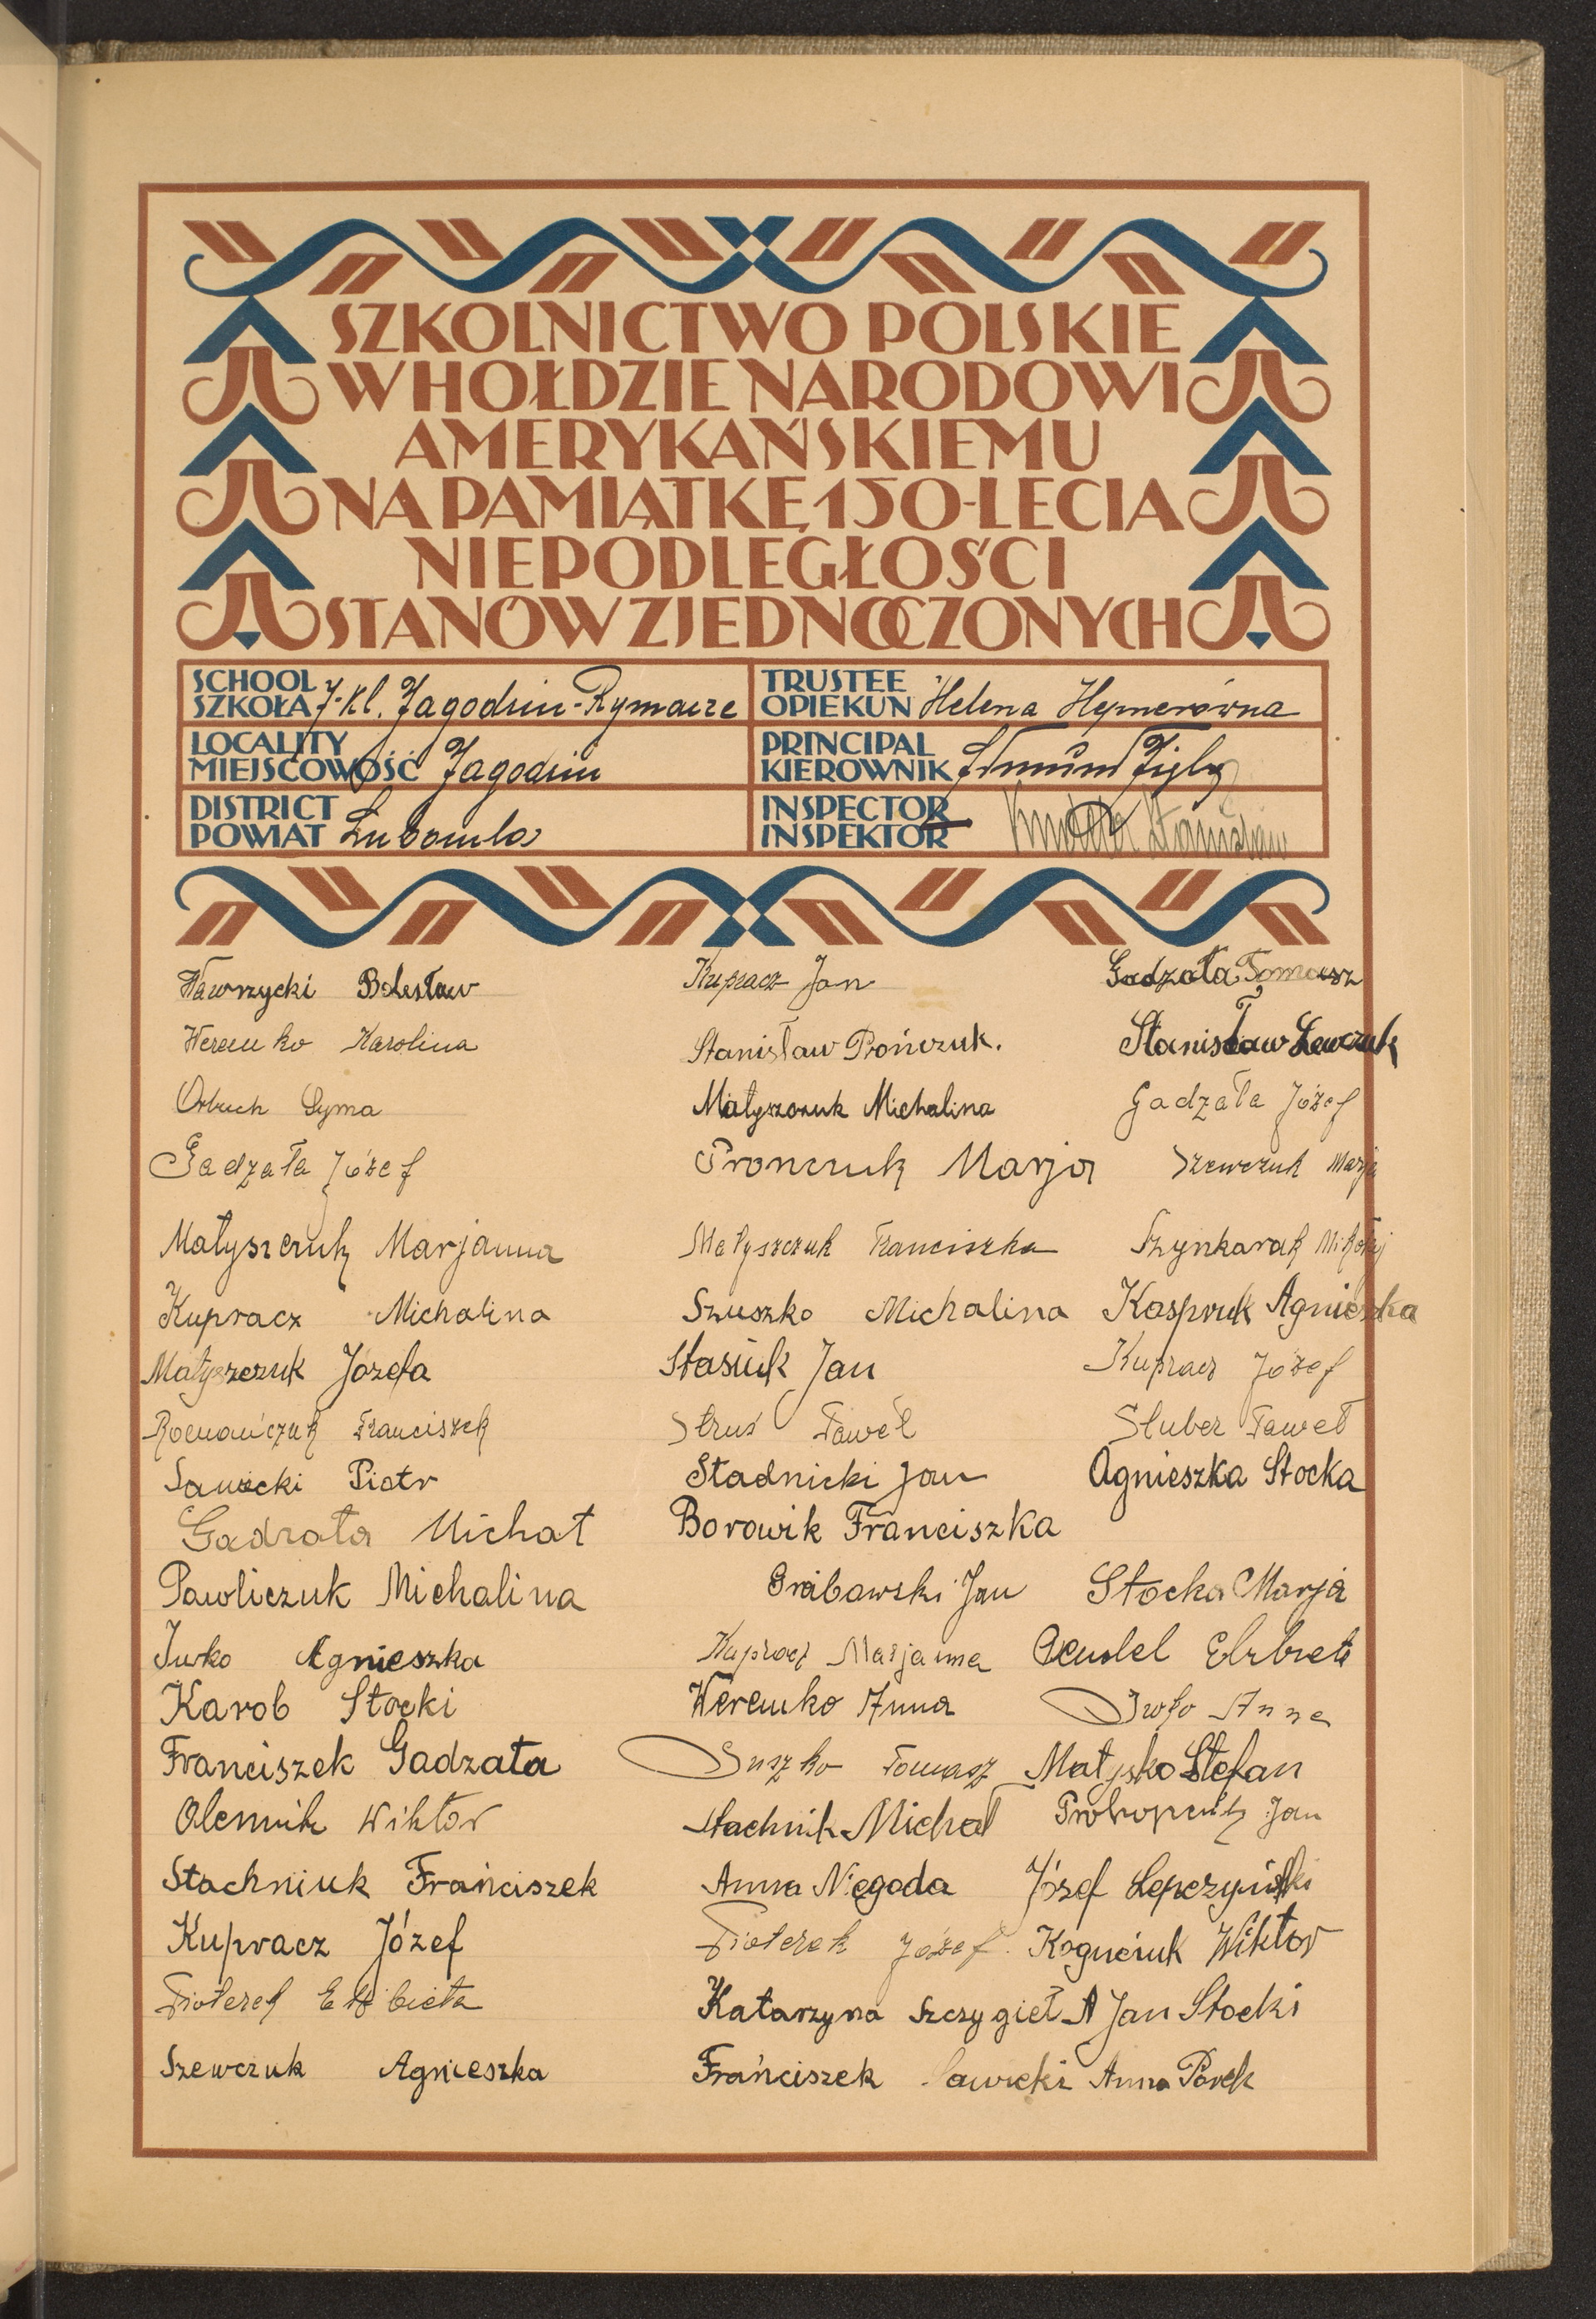 SZKOLNICTWO POLSKIE
W HOŁDZIE NARODOWI
AMERYKAŃSKIEMU
NA PAMIĄTKĘ 150-LECIA
NIEPODLEGŁOŚCI
STANÓW ZJEDNOCZONYCH
SCHOOL SZKOŁA 7-kl. Jagodzin-Rymacze
TRUSTEE OPIEKUN Helena Hejnerówna
LOCALITY MIEJSCOWOŚĆ Jagodzin
PRINCIPAL KIEROWNIK Edmund
DISTRICT POWIAT Lubomla
INSPECTOR INSPEKTOR Stanisław
Wawrzycki Bolesław
Weremko Karolina
Orbuch Syma
Gadzała Józef
Małyszczuk Marjanna
Kupracz Michalina
Małyszczuk Józefa
Romańczuk Franciszek
Sawicki Piotr
Gadzała Michał
Pawliczuk Michalina
Iwko Agnieszka
Karob Stocki
Franciszek Gadzała
Olennik Wiktor
Stachniuk Frańciszek
Kupracz Józef
Pioterek Elżbieta
Szewczuk Agnieszka
Kupracz Jan
Stanisław Prończuk.
Małyszczuk Michalina
Pronczuk Marja
Małyszczuk Franciszka
Szuszko Michalina
Stasiuk Jan
Struś Paweł
Stadnicki Jan
Borowik Franciszka
Grabowski Jan
Kupracz Marjanna
Weremko Anna
Suszko Tomasz
Stachnik Michał
Anna Niegoda
Pioterek Józef
Katarzyna Szczygieł
Frańciszek Sawicki
Gadzała Tomasz
Stanisław Lewczuk
Gadzała Józef
Szewczuk Marja
Szynkaruk Mikołaj
Kaspruk Agnieszka
Kupracz Józef
Stuber Paweł
Agnieszka Stocka
Stocka Marja
Iwko Anna
Matysko Stefan
Prokopczuk Jan
Józef Lepczyński
Wiktor
Jan Stocki
Anna Pavek